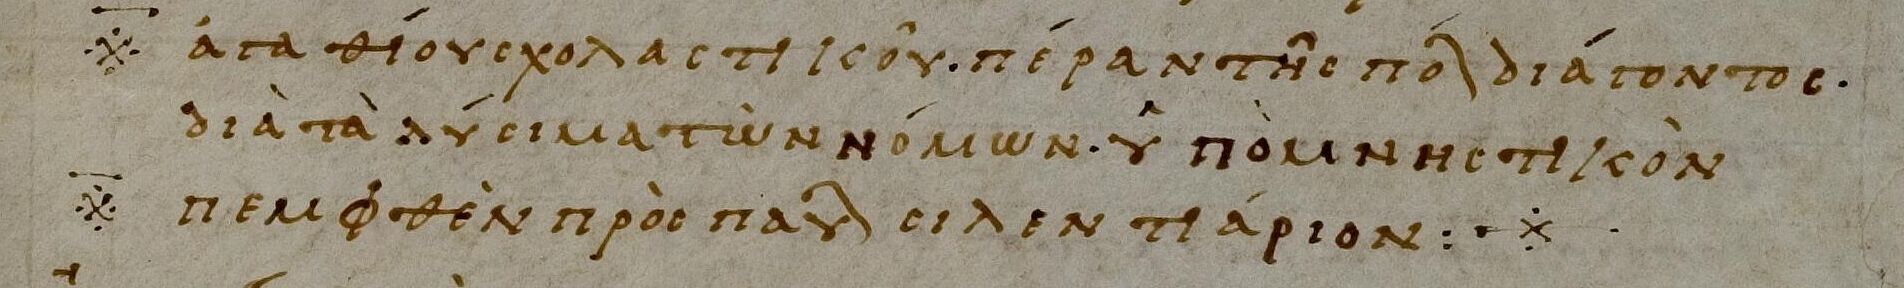 ἀγαθίου σχολαστικοῦ. πέραν τῆς πόλ διάγοντος.
διὰ τὰ λύσιμα τῶν νόμων. ὑπομνηστικὸν
πεμφθὲν πρὸς παυλ σιλεντιάριον :